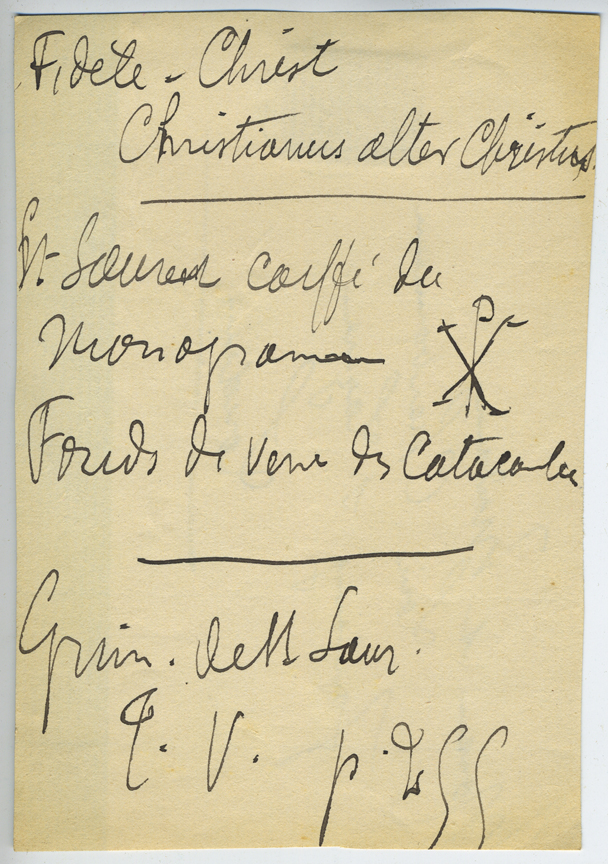 Fidèle - Christ
Christianus alter Christus
St Laurent coiffé du
Monogramme ☧
Fonds de verre des Catacombes
Grim. de St Laur.
T. V. p. 255